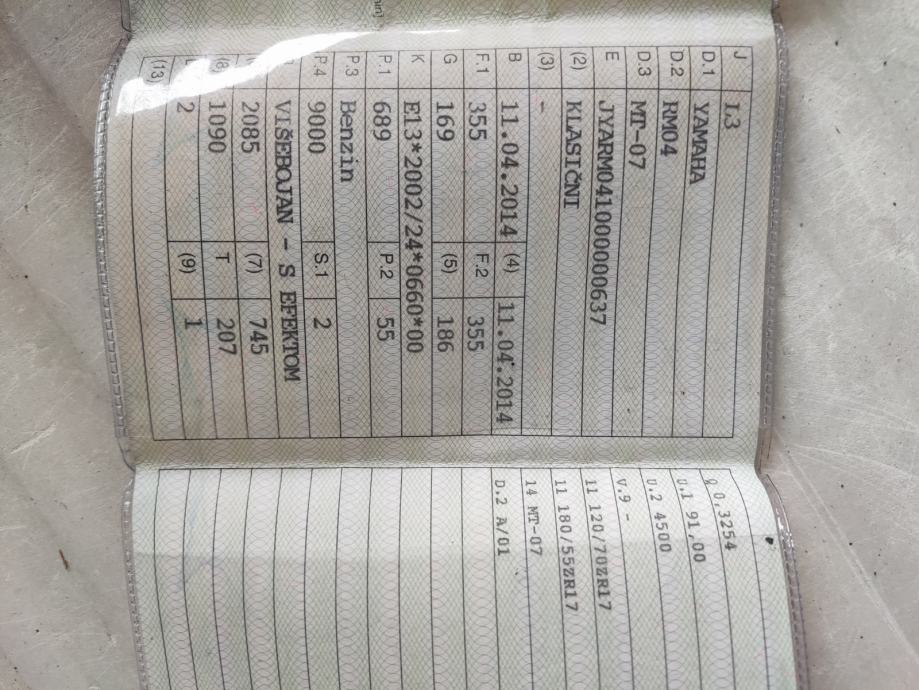 J L3
D.1 YAMAHA
D.2 RM04
D.3 MT-07
E JYARM041000000637
(2) KLASIČNI
(3) -
B 11.04.2014 (4) 11.04.2014
F.1 355 F.2 355
G 169 (5) 186
K E13*2002/24*0660*00
P.1 689 P.2 55
P.3 Benzin
P.4 9000 S.1 2
VIŠEBOJAN - S EFEKTOM
2085 (7) 745
1090 T 207
2 (9) 1
(13)
Q 0,3254
U.1 91,00
U.2 4500
V.9 -
11 120/70ZR17
11 180/55ZR17
14 MT-07
D.2 A/01